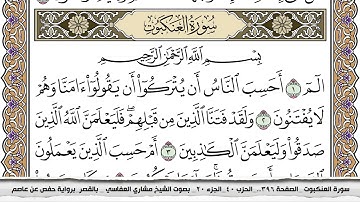 سورة العنكبوت
بسم الله الرحمن الرحيم
الٓمٓ ١ أَحَسِبَ ٱلنَّاسُ أَن يُتْرَكُوٓا۟ أَن يَقُولُوٓا۟ ءَامَنَّا وَهُمْ
لَا يُفْتَنُونَ ٢ وَلَقَدْ فَتَنَّا ٱلَّذِينَ مِن قَبْلِهِمْ ۖ فَلَيَعْلَمَنَّ ٱللَّهُ ٱلَّذِينَ
صَدَقُوا۟ وَلَيَعْلَمَنَّ ٱلْكَـٰذِبِينَ ٣ أَمْ حَسِبَ ٱلَّذِينَ يَعْمَلُونَ
سورة العنكبوت .. الصفحة ٣٩٦ .. الحزب ٤٠ .. الجزء ٢٠ .. بصوت الشيخ مشاري العفاسي .. بالقصر برواية حفص عن عاصم